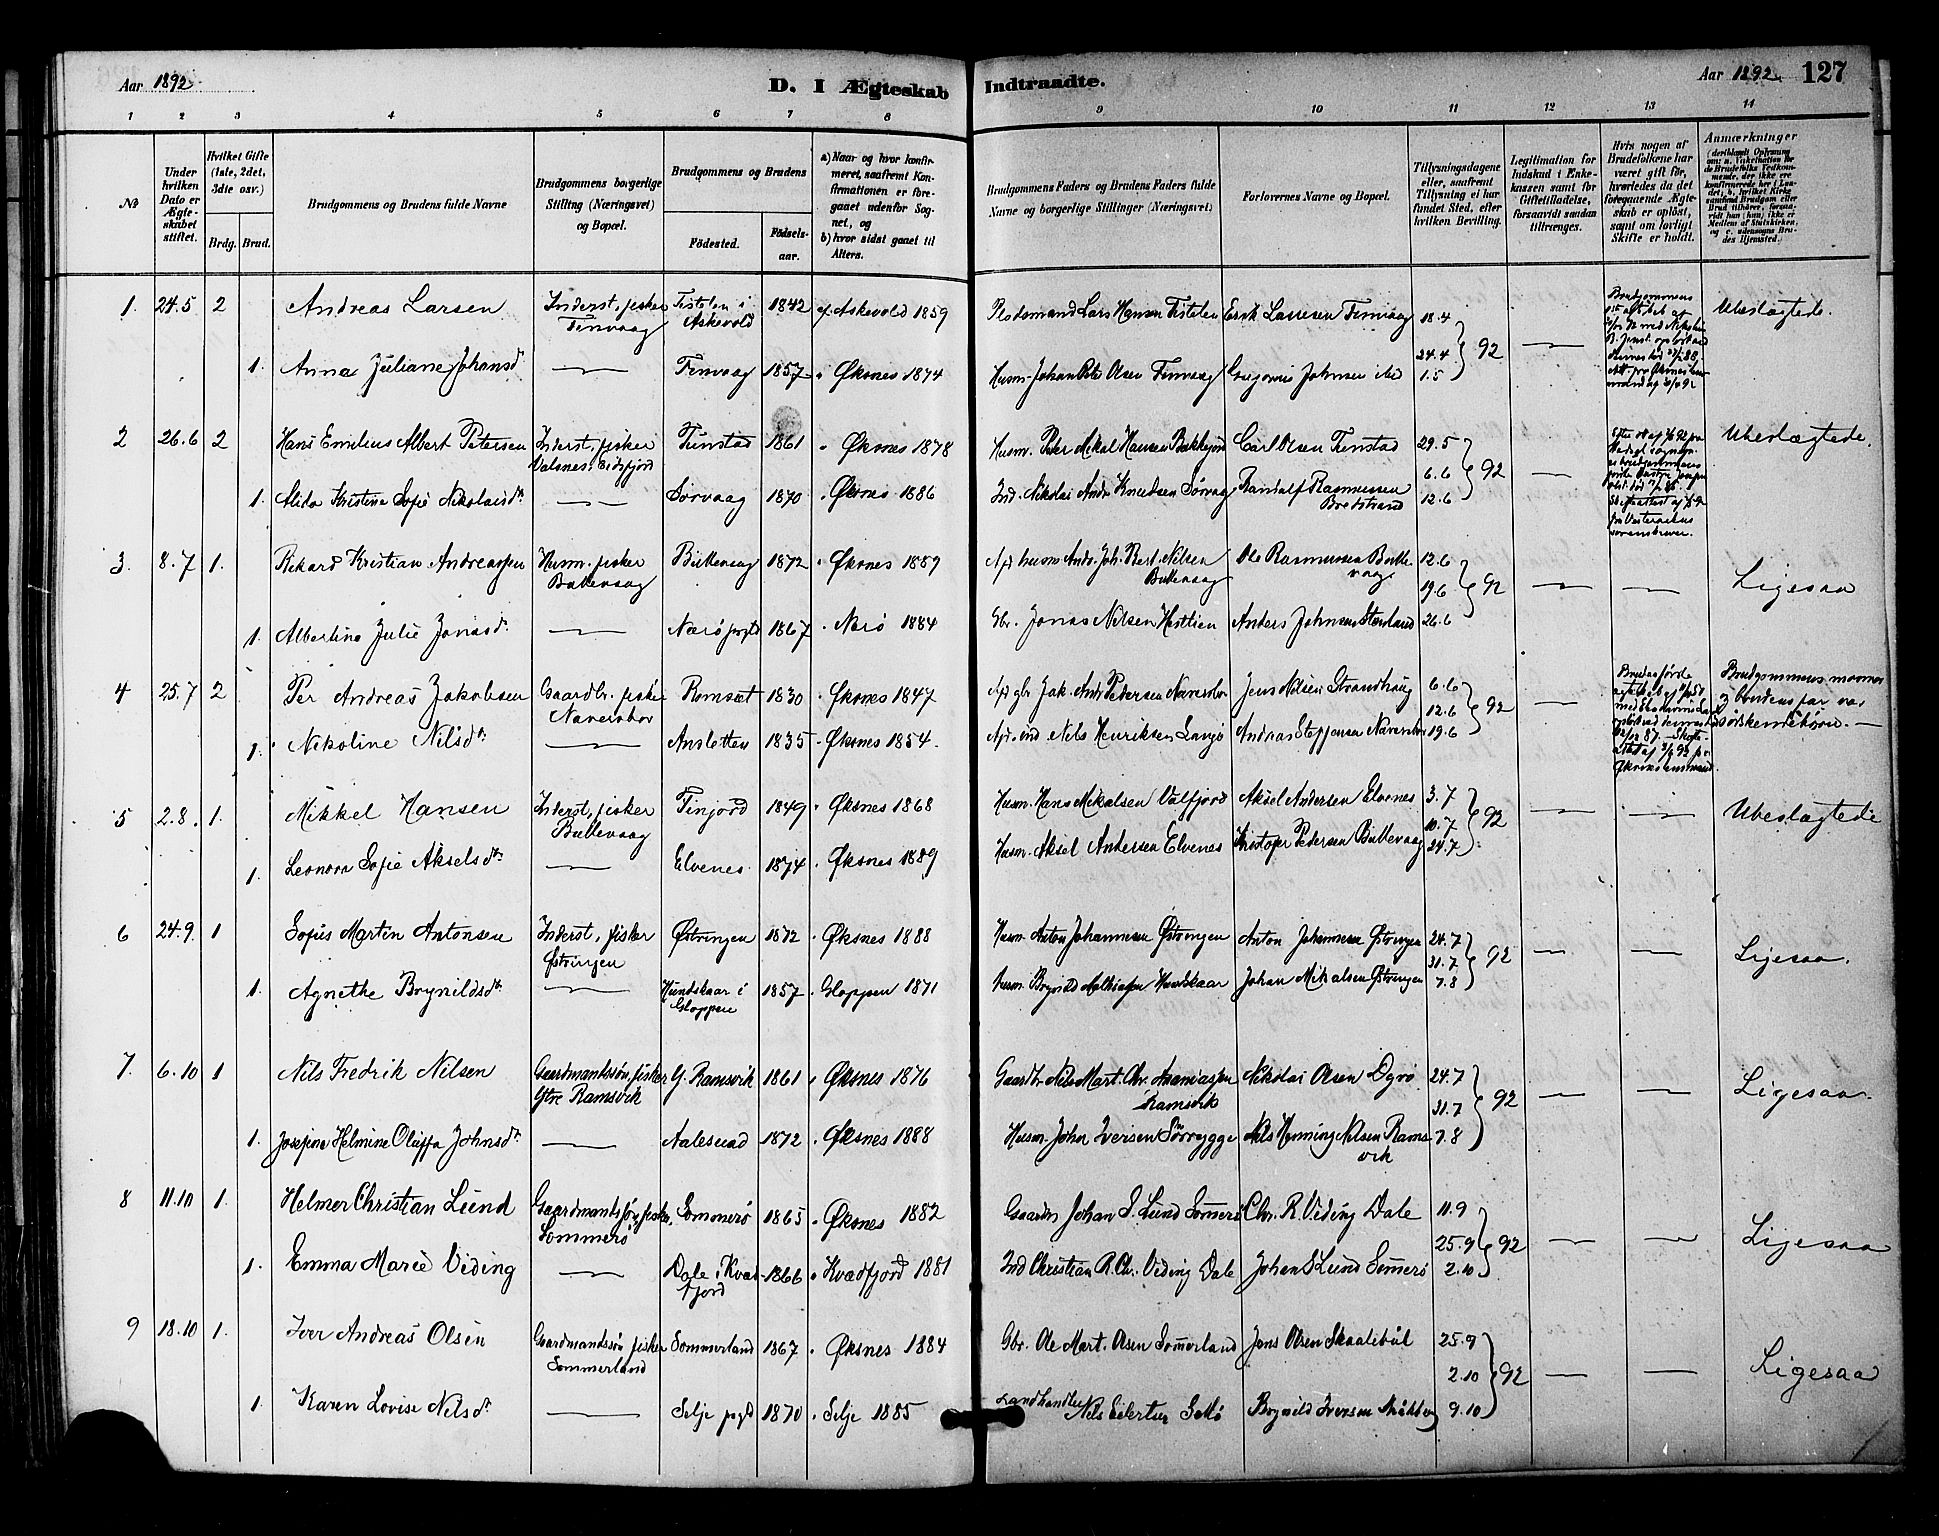 Aar 1892
D. I Ægteskab Indtraadte.
Aar 1892 127
1 2 3 4 5 6 7 8 9 10 11 12 13 14
No
Under hvilken Dato er Ægteskabet stiftet.
Hvilket Gifte (1ste, 2det, 3die osv.)
Brdg. Brud.
Brudgommens og Brudens fulde Navne
Brudgommens borgerlige Stilling (Næringsvei) og Bopæl.
Brudgommens og Brudens
Fødested. Fødselsaar.
a) Naar og hvor konfirmeret, saafremt Konfirmationen er foregaaet udenfor Sognet, og
b) hvor sidst gaaet til Alters.
Brudgommens Faders og Brudens Faders fulde Navne og borgerlige Stillinger (Næringsvei)
Forlovernes Navne og Bopæl.
Tillysningsdagene eller, saafremt Tillysning ei har fundet Sted, efter hvilken Bevilling.
Legitimation for Indskud i Enkekassen samt for Giftetilladelse, forsaavidt saadan tiltrænges.
Hvis nogen af Brudefolkene har været gift før, hvorledes da det foregaaende Ægteskab er opløst, samt om lovligt Skifte er holdt.
Anmærkninger
1. 24.5 2 Andreas Larsen Inderst, fisker Finvaag Fistelen i Askevold 1842 Askevold 1859 Pladsmand Lars Hansen Fistelen Erik Larsen Finvaag 18.4 Ubeslægtede.
1. Anna Juliane Johansdr — Finvaag 1857 Øksnes 1874 Husm. Johan Olsen Finvaag Johnsen 24.4 1.5 92 —
2 26.6 2 Hans Emilius Albert Petersen Inderst, fisker Valsnes, Eidsfjord Finstad 1861 Øksnes 1878 Husm. Peter Mikal Hansen Carl Olsen Finstad 29.5 Ubeslægtede.
1. Kristine Sofie Nikolaisdr — Sørvaag 1870 Øksnes 1886 Ind. Nikolai Andr. Knudsen Sørvaag Randolf Rasmussen Bredstrand 6.6 12.6 92 —
3. 8.7 1. Rikard Kristian Andreassen Husm. fisker Buttevaag Buttevaag 1872 Øksnes 1889 Afd husm. Andr. Joh. Nilsen Buttevaag Ole Rasmussen Buttevaag 12.6 19.6 92 — — Ligesaa
1. Albertine Julie Jonasdr — Nærø prgld 1867 Nærø 1884 Gbr. Jonas Nilsen Anders Johnsen 26.6
4 25.7 2 Per Andreas Jakobsen Gaardbr. fisker Naversbor Romsæt 1830 Øksnes 1847 Afd gbr Jak. Andr. Pedersen Jens Nilsen Strandhaug 6.6 12.6 92 — Brudgommens mormor
1. Nikoline Nilsdr — Ansletten 1835 Øksnes 1854. Afd. ind Nils Henriksen Andreas 19.6 søskendebørn. —
5 2.8. 1. Mikkel Hansen Inderst, fisker Buttevaag Finjord 1849 Øksnes 1868 Husm. Hans Mikalsen Valfjord Aksel Andersen Elvenes 3.7 10.7 92 — — Ubeslægtede
1. Leonora Sofie Akselsdr — Elvenes 1874 Øksnes 1889 Husm. Aksel Andersen Elvenes Kristofer Pedersen Buttevaag 24.7
6 24.9. 1 Sofus Martin Antonsen Inderst, fisker Østvingen Østvingen 1872 Øksnes 1888 Husm. Anton Johannesen Østvingen Anton Johannesen Østvingen 24.7 31.7 92 — — Ligesaa.
1. Agnethe Brynildsdr — Hundskaar i Gloppen 1857 Gloppen 1871 Husm. Brynild Mathiasen Hundskaar Johan Mikalsen Østvingen 7.8
7. 6.10 1 Nils Fredrik Nilsen Gaardmandssøn, fisker Ytre Ramsvik Y. Ramsvik 1861 Øksnes 1876 Gaardbr. Nils Mart. Chr. Ananiassen Ramsvik Nikolai Olsen Dyrø 24.7 31.7 92 — — Ligesaa
1. Josefine Helmine Oluffa Johnsdr — Aalesund 1872 Øksnes 1888 Husm. John Iversen Sørrygge Nils Henning Nilsen Ramsvik 7.8
8 11.10 1. Helmer Christian Lund Gaardmandssøn, fisker, Sommerø Sommerø 1865 Øksnes 1882 Gaardbr Johan S. Lund Sommerø Chr. R. Viding Dale 11.9 25.9 92 — — Ligesaa
1. Emma Marie Viding — Dale i Kvædfjord 1866 Kvædfjord 1881 Ind Christian R. Chr. Viding Dale Johan S Lund Sommerø 2.10
9 18.10 1. Iver Andreas Olsen Gaardmandssøn fisker Sommerland Sommerland 1867 Øksnes 1884 Gbr. Ole Mart. Olsen Sommerland Jens Olsen Skaalebøl 25.9 2.10 92 — — Ligesaa
1. Karen Lovise Nilsdr — Selje prgld 1870 Selje 1885 Landhandler Nils Brynild Iversen 9.10